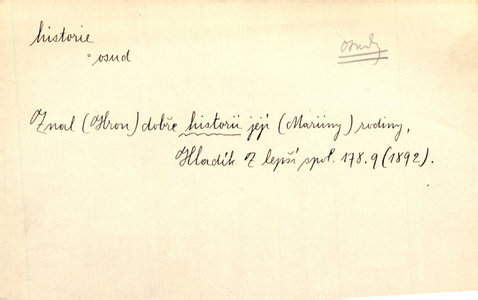 historie
= osud
osudy
Znal (Hron) dobře historii její (Mariiny) rodiny,
Hladík Z lepší spol. 178. 9 (1892).